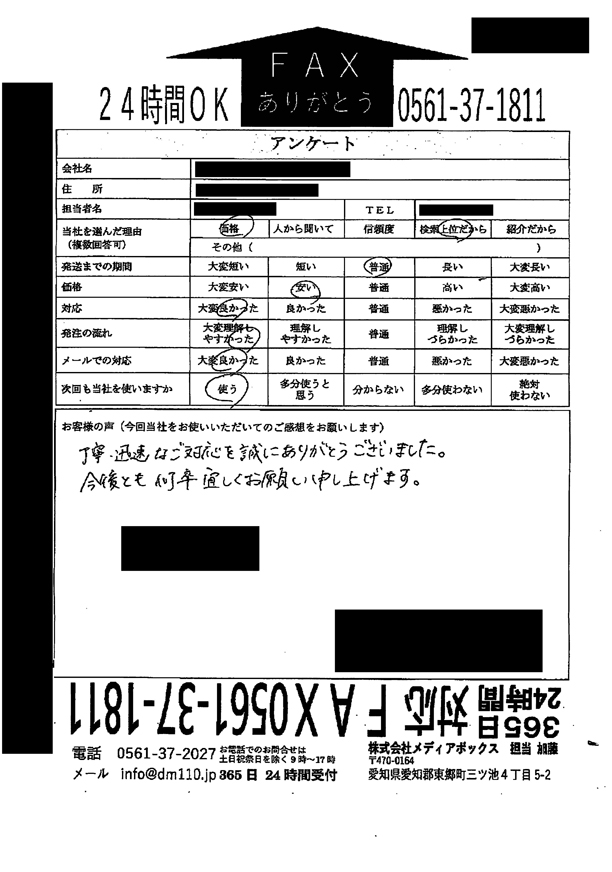 FAX
ありがとう
24時間OK
0561-37-1811
アンケート
会社名
住 所
担当者名 TEL
当社を選んだ理由(複数回答可) 価格 人から聞いて 信頼度 検索上位だから 紹介だから
その他( )
発送までの期間 大変短い 短い 普通 長い 大変長い
価格 大変安い 安い 普通 高い 大変高い
対応 大変良かった 良かった 普通 悪かった 大変悪かった
発注の流れ 大変理解しやすかった 理解しやすかった 普通 理解しづらかった 大変理解しづらかった
メールでの対応 大変良かった 良かった 普通 悪かった 大変悪かった
次回も当社を使いますか 使う 多分使うと思う 分からない 多分使わない 絶対使わない
お客様の声(今回当社をお使いいただいてのご感想をお願いします)
丁寧、迅速なご対応を誠にありがとうございました。
今後とも何卒宜しくお願い申し上げます。
365日24時間対応 FAX0561-37-1811
電話 0561-37-2027 お電話でのお問合せは土日祝祭日を除く9時~17時
メール info@dm110.jp 365日 24時間受付
株式会社メディアボックス 担当 加藤
〒470-0164
愛知県愛知郡東郷町三ツ池4丁目5-2